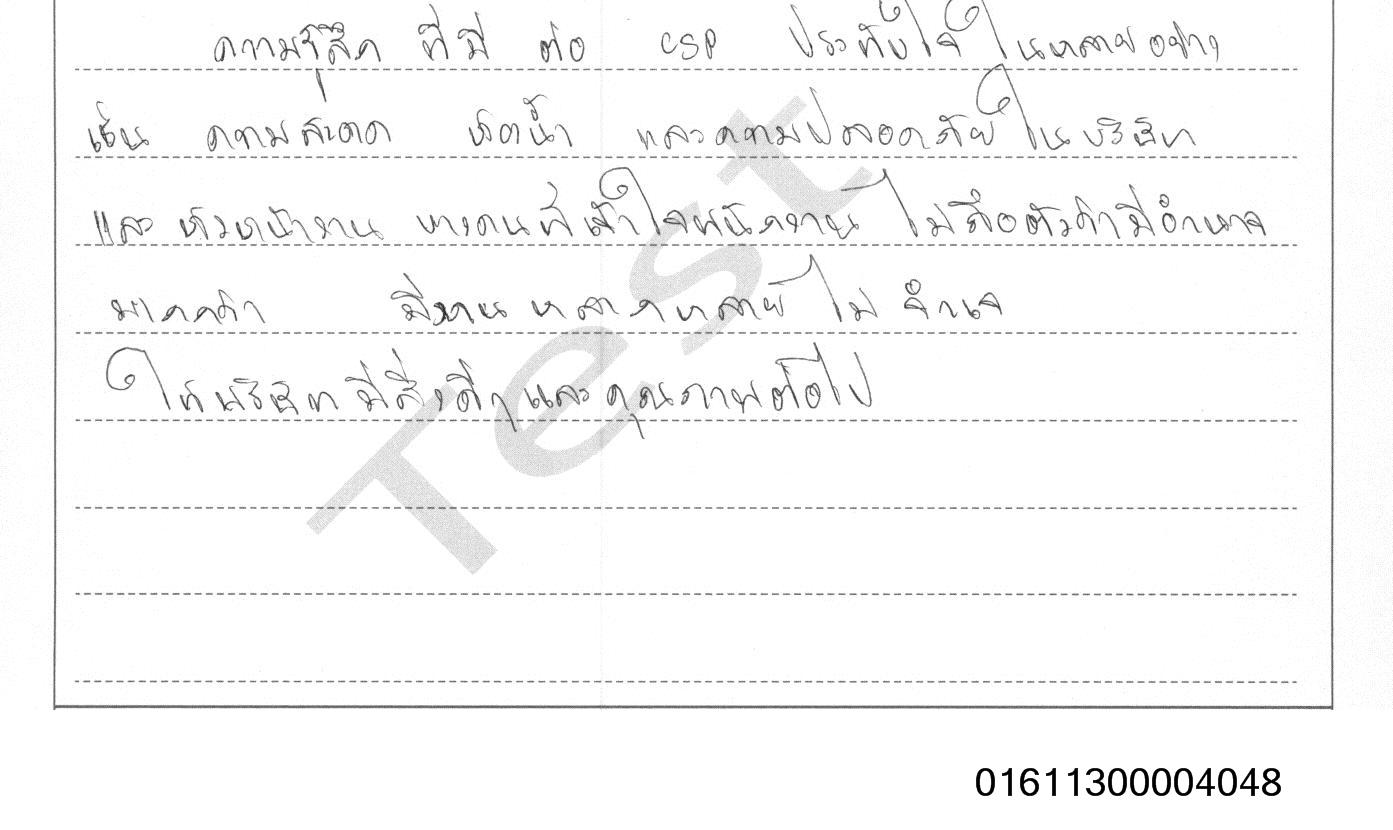 ความรู้สึก ที่มี ต่อ CSP ประทับใจ ในหลายอย่าง
เช่น ความสะอาด ห้องน้ำ และความปลอดภัย ในบริษัท
และ หัวหน้างาน บางคนที่เข้าใจพนักงาน ไม่ถือตัวว่ามีอำนาจ
มากกว่า มีงาน หลากหลาย ไม่ จำเจ
ให้บริษัท มีสิ่งดีๆ และ คุณภาพต่อไป
Test
01611300004048